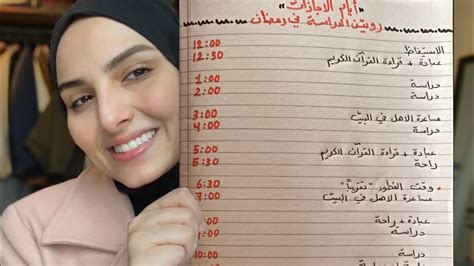 "أيام الاجازات"
روتين الدراسة في رمضان
12:00 الاستيقاظ
12:30 عبادة + قراءة القرآن الكريم
1:00 دراسة
2:00 دراسة
3:00 مساعدة الاهل في البيت
4:00 دراسة
5:00 عبادة + قراءة القرآن الكريم
5:30 راحة
6:30 وقت الفطور "تقريباً"
7:00 مساعدة الاهل في البيت
عبادة + راحة
دراسة
دراسة